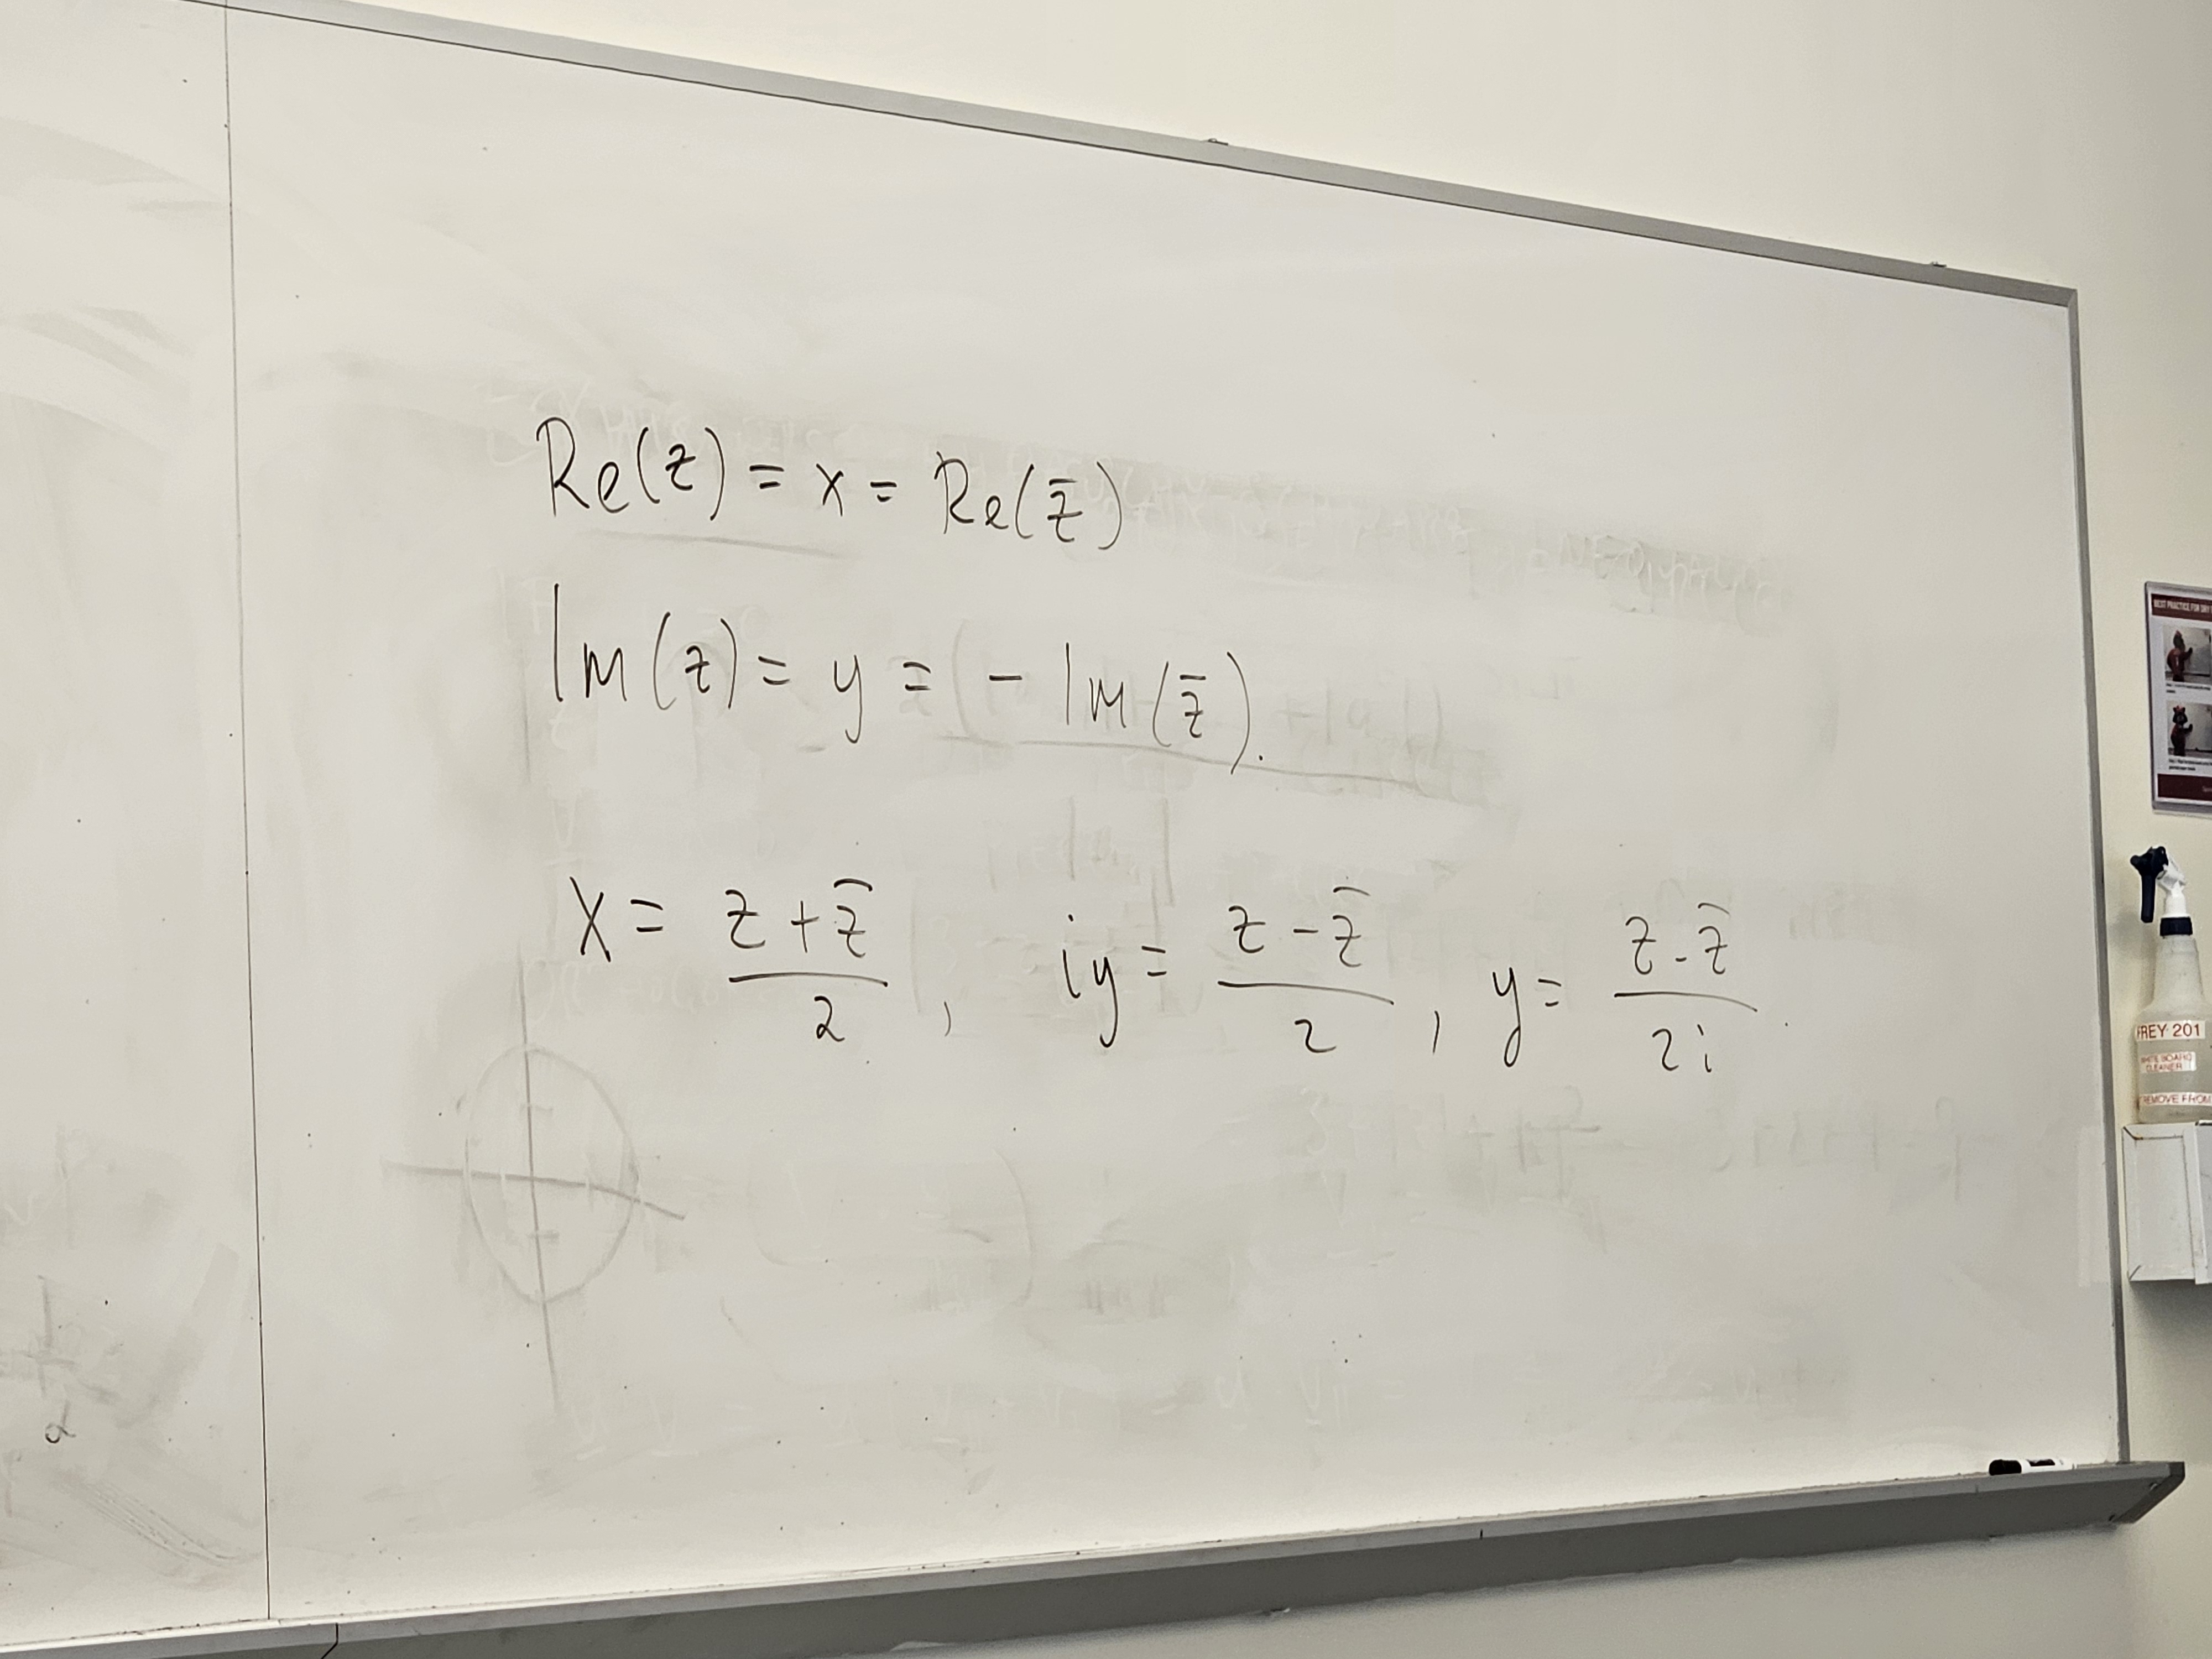 Re(z) = x = Re(z̄)
Im(z) = y = - Im(z̄).
x = (z + z̄)/2 , iy = (z - z̄)/2 , y = (z - z̄)/2i .
α
BEST PRACTICE FOR DRY
FREY 201
WHITE BOARD
CLEANER
REMOVE FROM